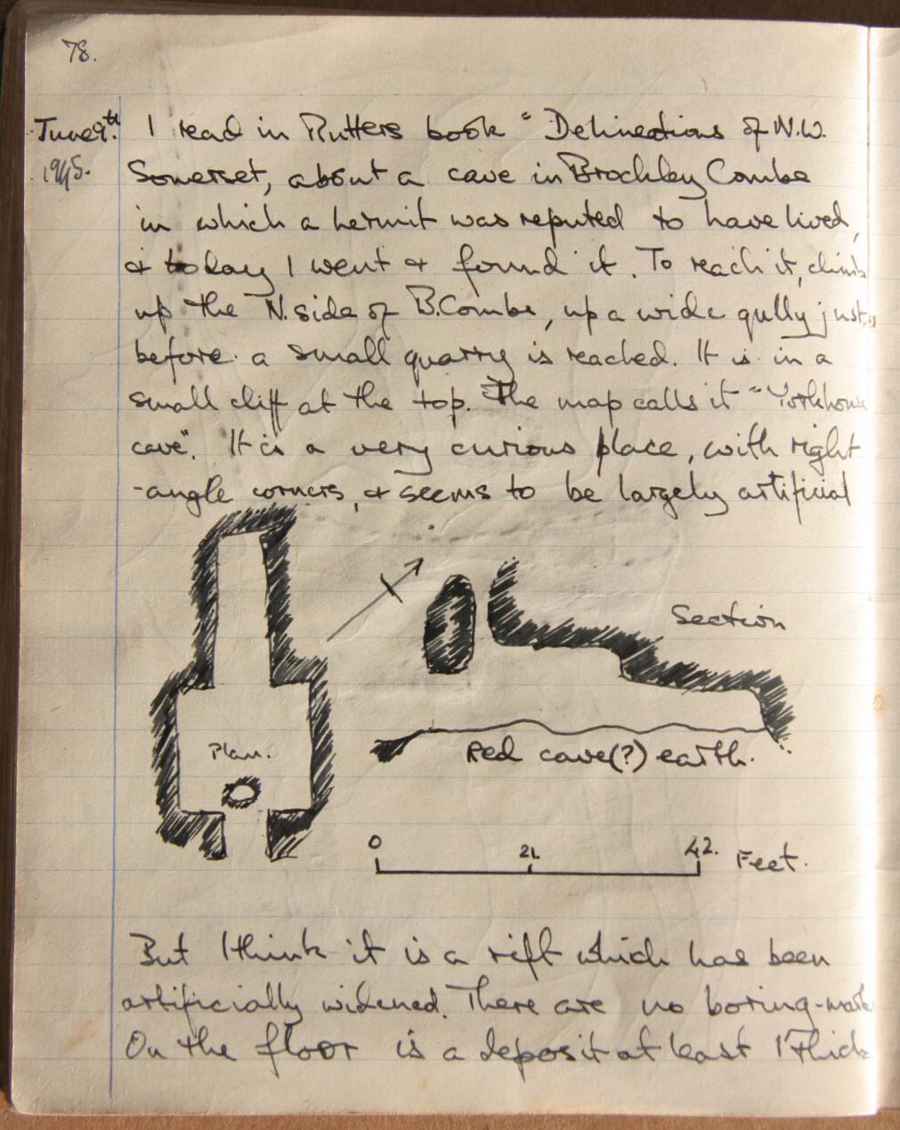 78.
June 9th. I read in Rutters book "Delineations of N.W.
1945. Somerset, about a cave in Brockley Combe
in which a hermit was reputed to have lived,
& today I went & found it. To reach it, climb
up the N. side of B. Combe, up a wide gully just
before a small quarry is reached. It is in a
small cliff at the top. The map calls it "Yorkhouse
cave". It is a very curious place, with right
-angle corners, & seems to be largely artificial
Section
Plan.
Red cave(?) earth.
0 21 42. Feet.
But I think it is a rift which has been
artificially widened. There are no boring-mark
On the floor is a deposit at least 1' thick